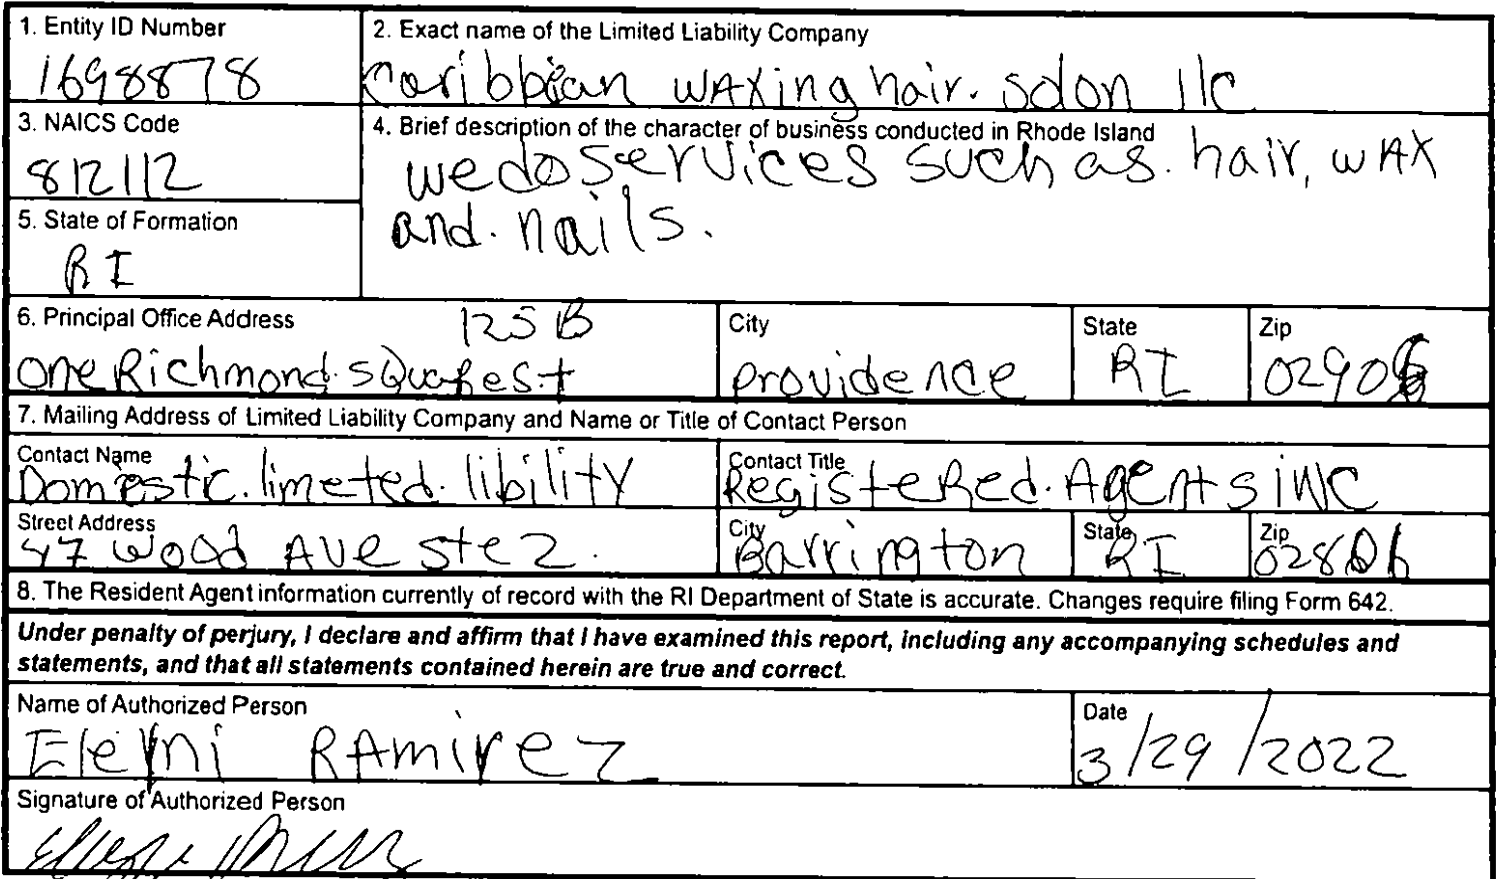 1. Entity ID Number
1698878
2. Exact name of the Limited Liability Company
Caribbean WAXing hair. Solon llc
3. NAICS Code
812112
4. Brief description of the character of business conducted in Rhode Island
we do services such as. hair, WAX
and. nails.
5. State of Formation
RI
6. Principal Office Address
125 B
One Richmond. SQuaRe st
City
providence
State
RI
Zip
02906
7. Mailing Address of Limited Liability Company and Name or Title of Contact Person
Contact Name
Domestic. limeted. libility
Contact Title
RegisteRed. Agents inc
Street Address
47 Wood Ave ste 2.
City
Barrington
State
RI
Zip
02806
8. The Resident Agent information currently of record with the RI Department of State is accurate. Changes require filing Form 642.
Under penalty of perjury, I declare and affirm that I have examined this report, including any accompanying schedules and
statements, and that all statements contained herein are true and correct.
Name of Authorized Person
RAmirez
Date
3/29/2022
Signature of Authorized Person